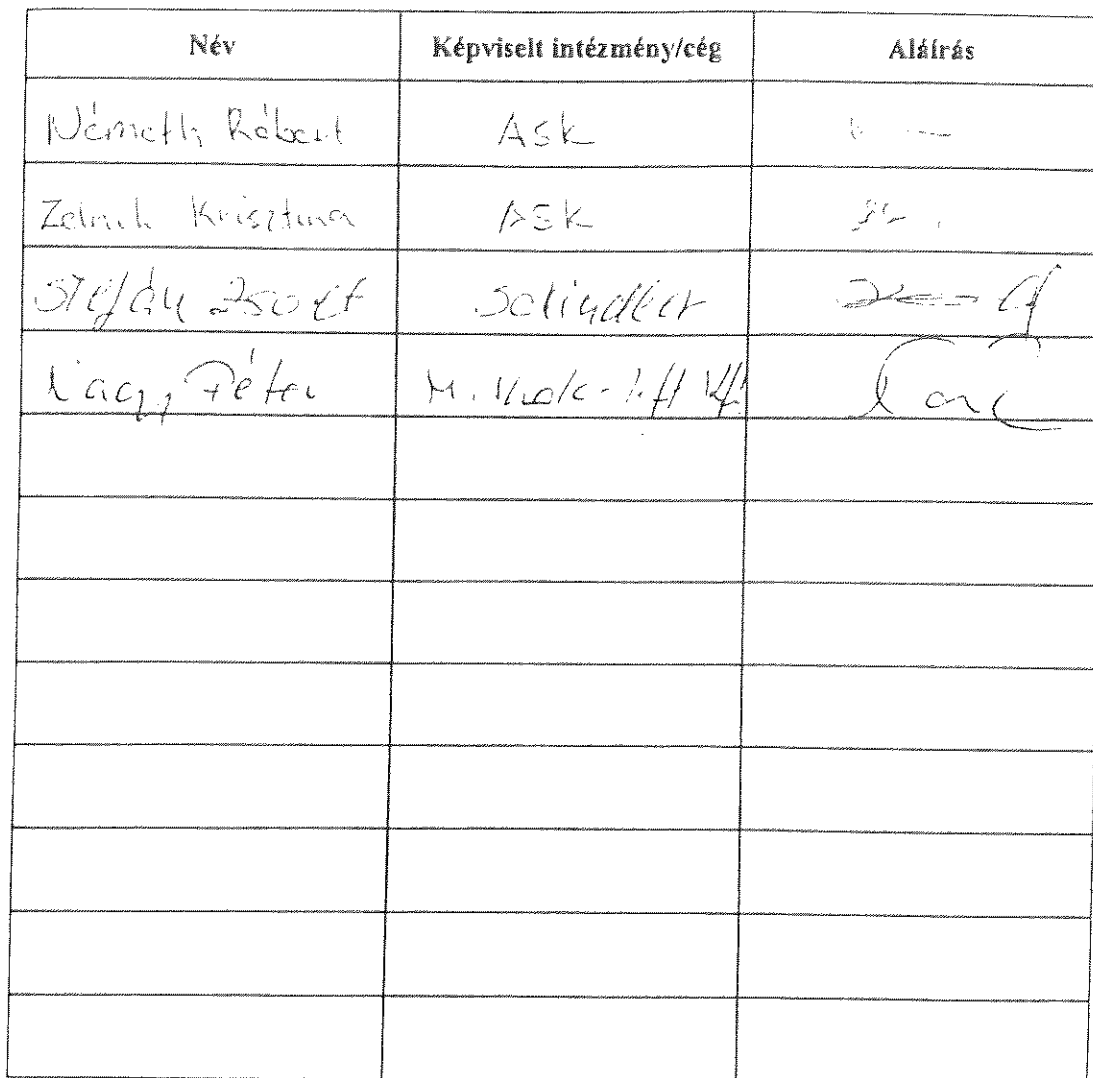 Név Képviselt intézmény/cég Aláírás
Németh Róbert ASK
Zelnik Krisztina ASK
Stefán Zsolt Schindler
Nagy Péter M. Kft